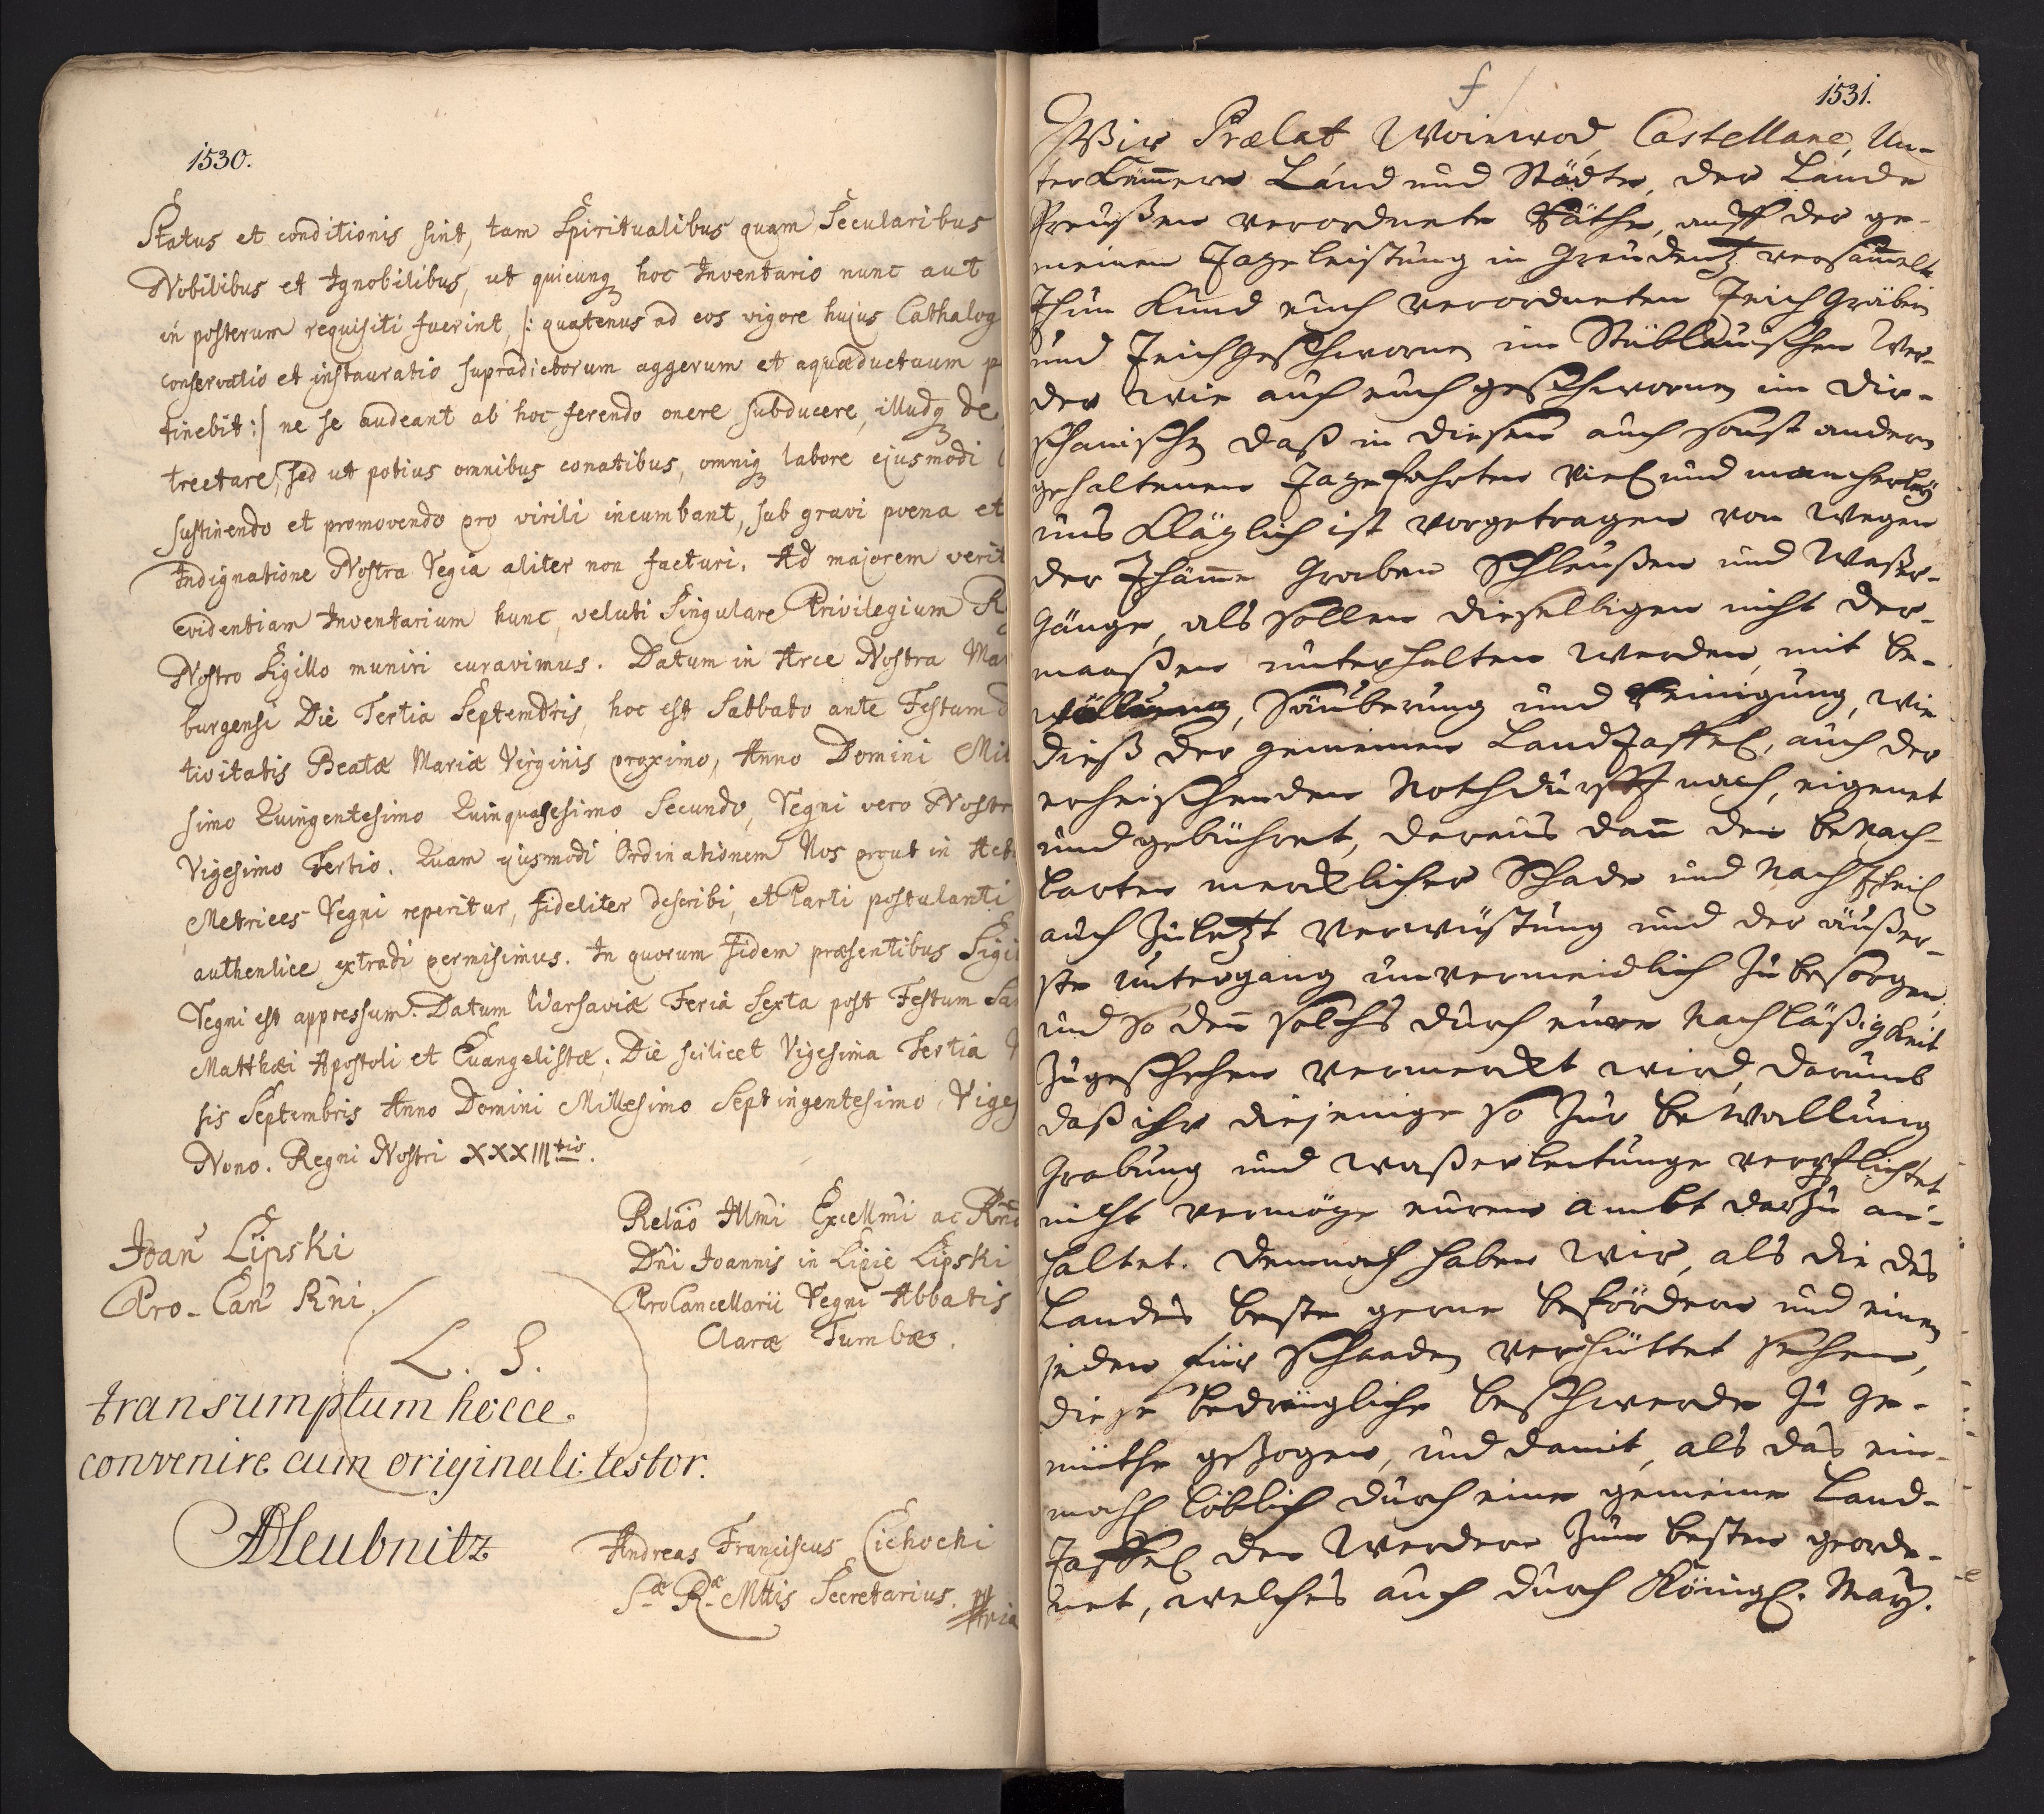 1530.
Status et conditionis sint, tam Spiritualibus quam Secularibus
Nobilibus et Ignobilibus, ut quicunq hoc Inventario nunc aut
in posterum requisiti fuerint, /: quatenus ad eos vigore hujus Cathalog
conservatio et instauratio supradictorum aggerum et aquæductuum p
tinebit :/ ne se audeant ab hoc ferendo onere subducere, illudq de
trectare, sed ut potius omnibus conatibus, omniq labore ejusmodi
sustinendo et promovendo pro virili incumbant, sub gravi poena et
Indignatione Nostra Regia aliter non facturi. Ad majorem verit
evidentiam Inventarium hunc, veluti Singulare Privilegium R
Nostro Sigillo muniri curavimus. Datum in Arce Nostra Mar
burgensi Die Tertia Septembris, hoc est Sabbato ante Festum
tivitatis Beatæ Mariæ Virginis proximo, Anno Domini Mil
simo Quingentesimo Quinquagesimo Secundo, Regni vero Nostr
Vigesimo Tertio. Quam ejusmodi Ordinationem Nos prout in Act
Metrices Regni reperitur, fideliter describi, et Parti postulanti
authentice extradi permisimus. In quorum fidem præsentibus Sigi
Regni est appressum. Datum Warsaviæ Feria Sexta post Festum Sa
Matthæi Apostoli et Evangelistæ. Die scilicet Vigesima Tertia
sis Septembris Anno Domini Millesimo Septingentesimo Viges
Nono. Regni Nostri XXXIII tio.
Joan Lipski
Pro-Can Rni
Relao Illmi Excellmi ac Rnd
Dni Joannis in Lipie Lipski
ProCancellarii Regni Abbatis
Claræ Tumbæ.
L. S.
transumptum hocce
convenire cum originali testor.
Leubnitz
Andreas Franciscus Cichocki
S æ R æ Mttis Secretarius.
1531.
Wir Prælat Woiwod, Castellane, Un-
terKämmer Land und Städte, der Lande
Preußen verordnete Räthe, auff der ge-
meinen Tageleistung in Greudentz versamelt
Thun Kund euch verordneten Teich Gräben
und Teichgeschworne im Stüblauischen Wer-
der wie auch euch geschwornen im Dir-
schauischen daß in diesen auch sonst andern
gehaltenen Tagefahrten viel und mancherley
uns Kläglich ist vorgetragen von wegen
der Thäme Graben Schleußen und Waßer-
Gänge, als sollen dieselbigen nicht der-
maaßen unterhalten werden, mit be-
wallung, Säuberung und Reinigung, wie
dieß der gemeinen LandTaffel, auch der
erheischenden Nothdurfft nach, eigenet
und gebühret, deraus dan den benach-
barten mercklicher Schade und Nachtheil
auch zuletzt Verwüstung und der äußer-
ste untergang unvermeidlich zubesorgen,
und so den solchs durch eure Nachläßigkeit
zugeschehen vermerckt wird, darumb
daß ihr diejenige so zur bewallung
Grabung und waßerleitunge verpflichtet
nicht vermöge eurem ambt darzu an-
haltet. Demnach haben wir, als die des
Landes beste gerne befördern und einen
jeden für Schaaden verhüttet sehen,
diese bedrengliche beschwerde zu Ge-
müthe gezogen, und damit, als das ein-
mahl löblich durch eine gemeine Land-
Taffel den Werdern zum besten georde-
net, welches auch durch Königl. May.